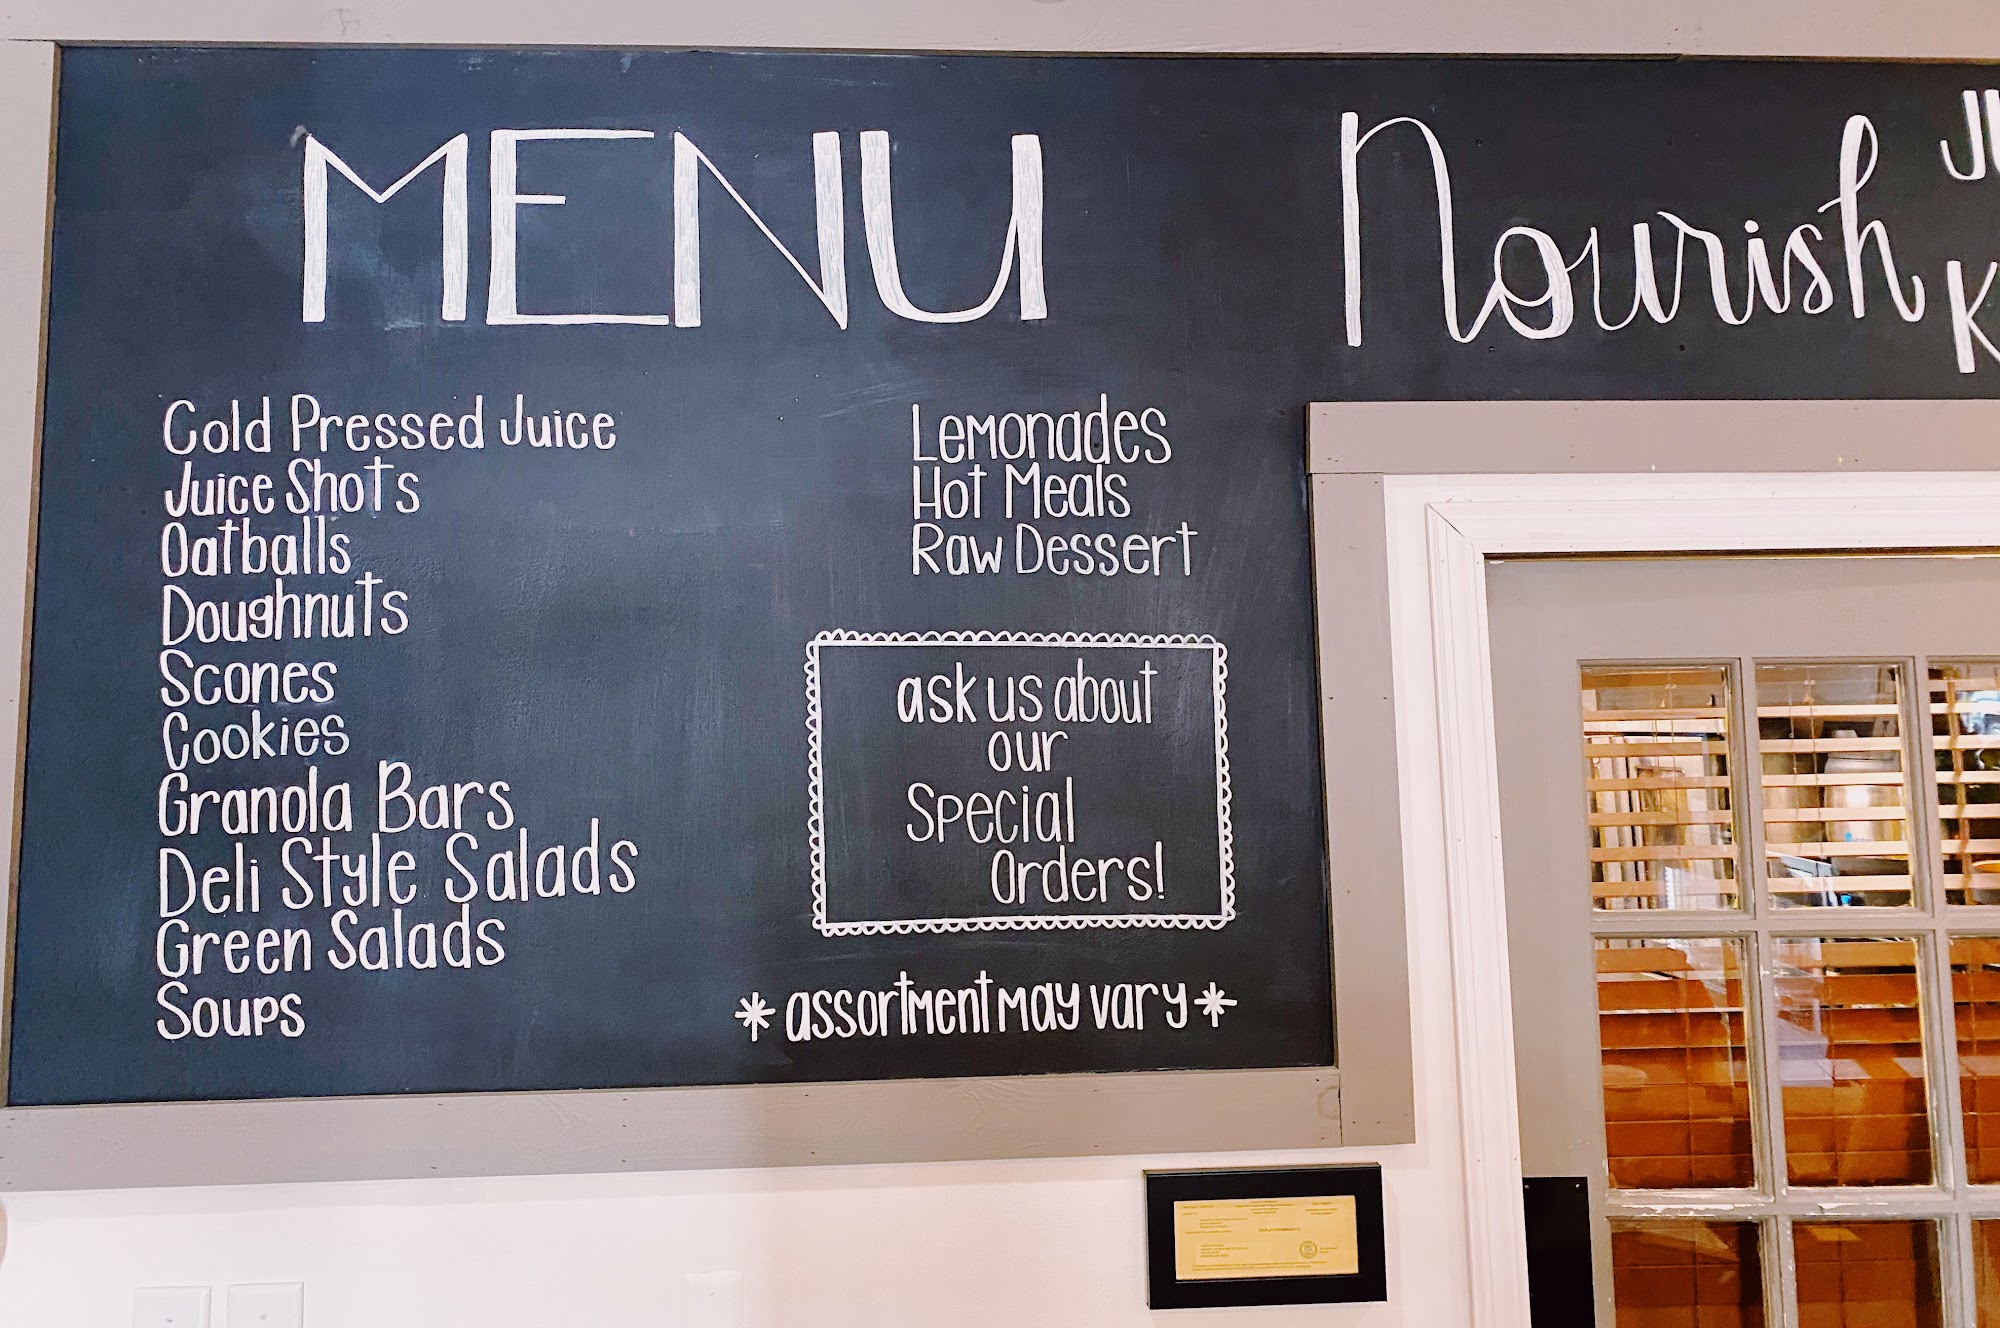 MENU
Cold Pressed Juice
Juice Shots
Oatballs
Doughnuts
Scones
Cookies
Granola Bars
Deli Style Salads
Green Salads
Soups
Lemonades
Hot Meals
Raw Dessert
ask us about
our
Special
Orders!
* assortment may vary *
Nourish